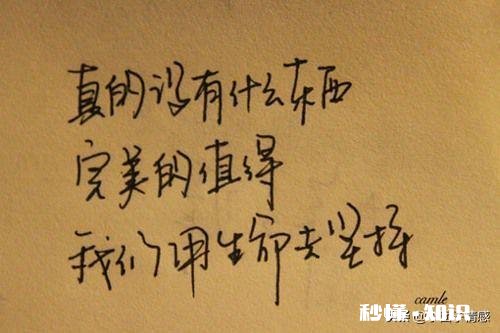 真的没有什么东西
完美的值得
我们用生命去坚持
camle
秒懂·知识